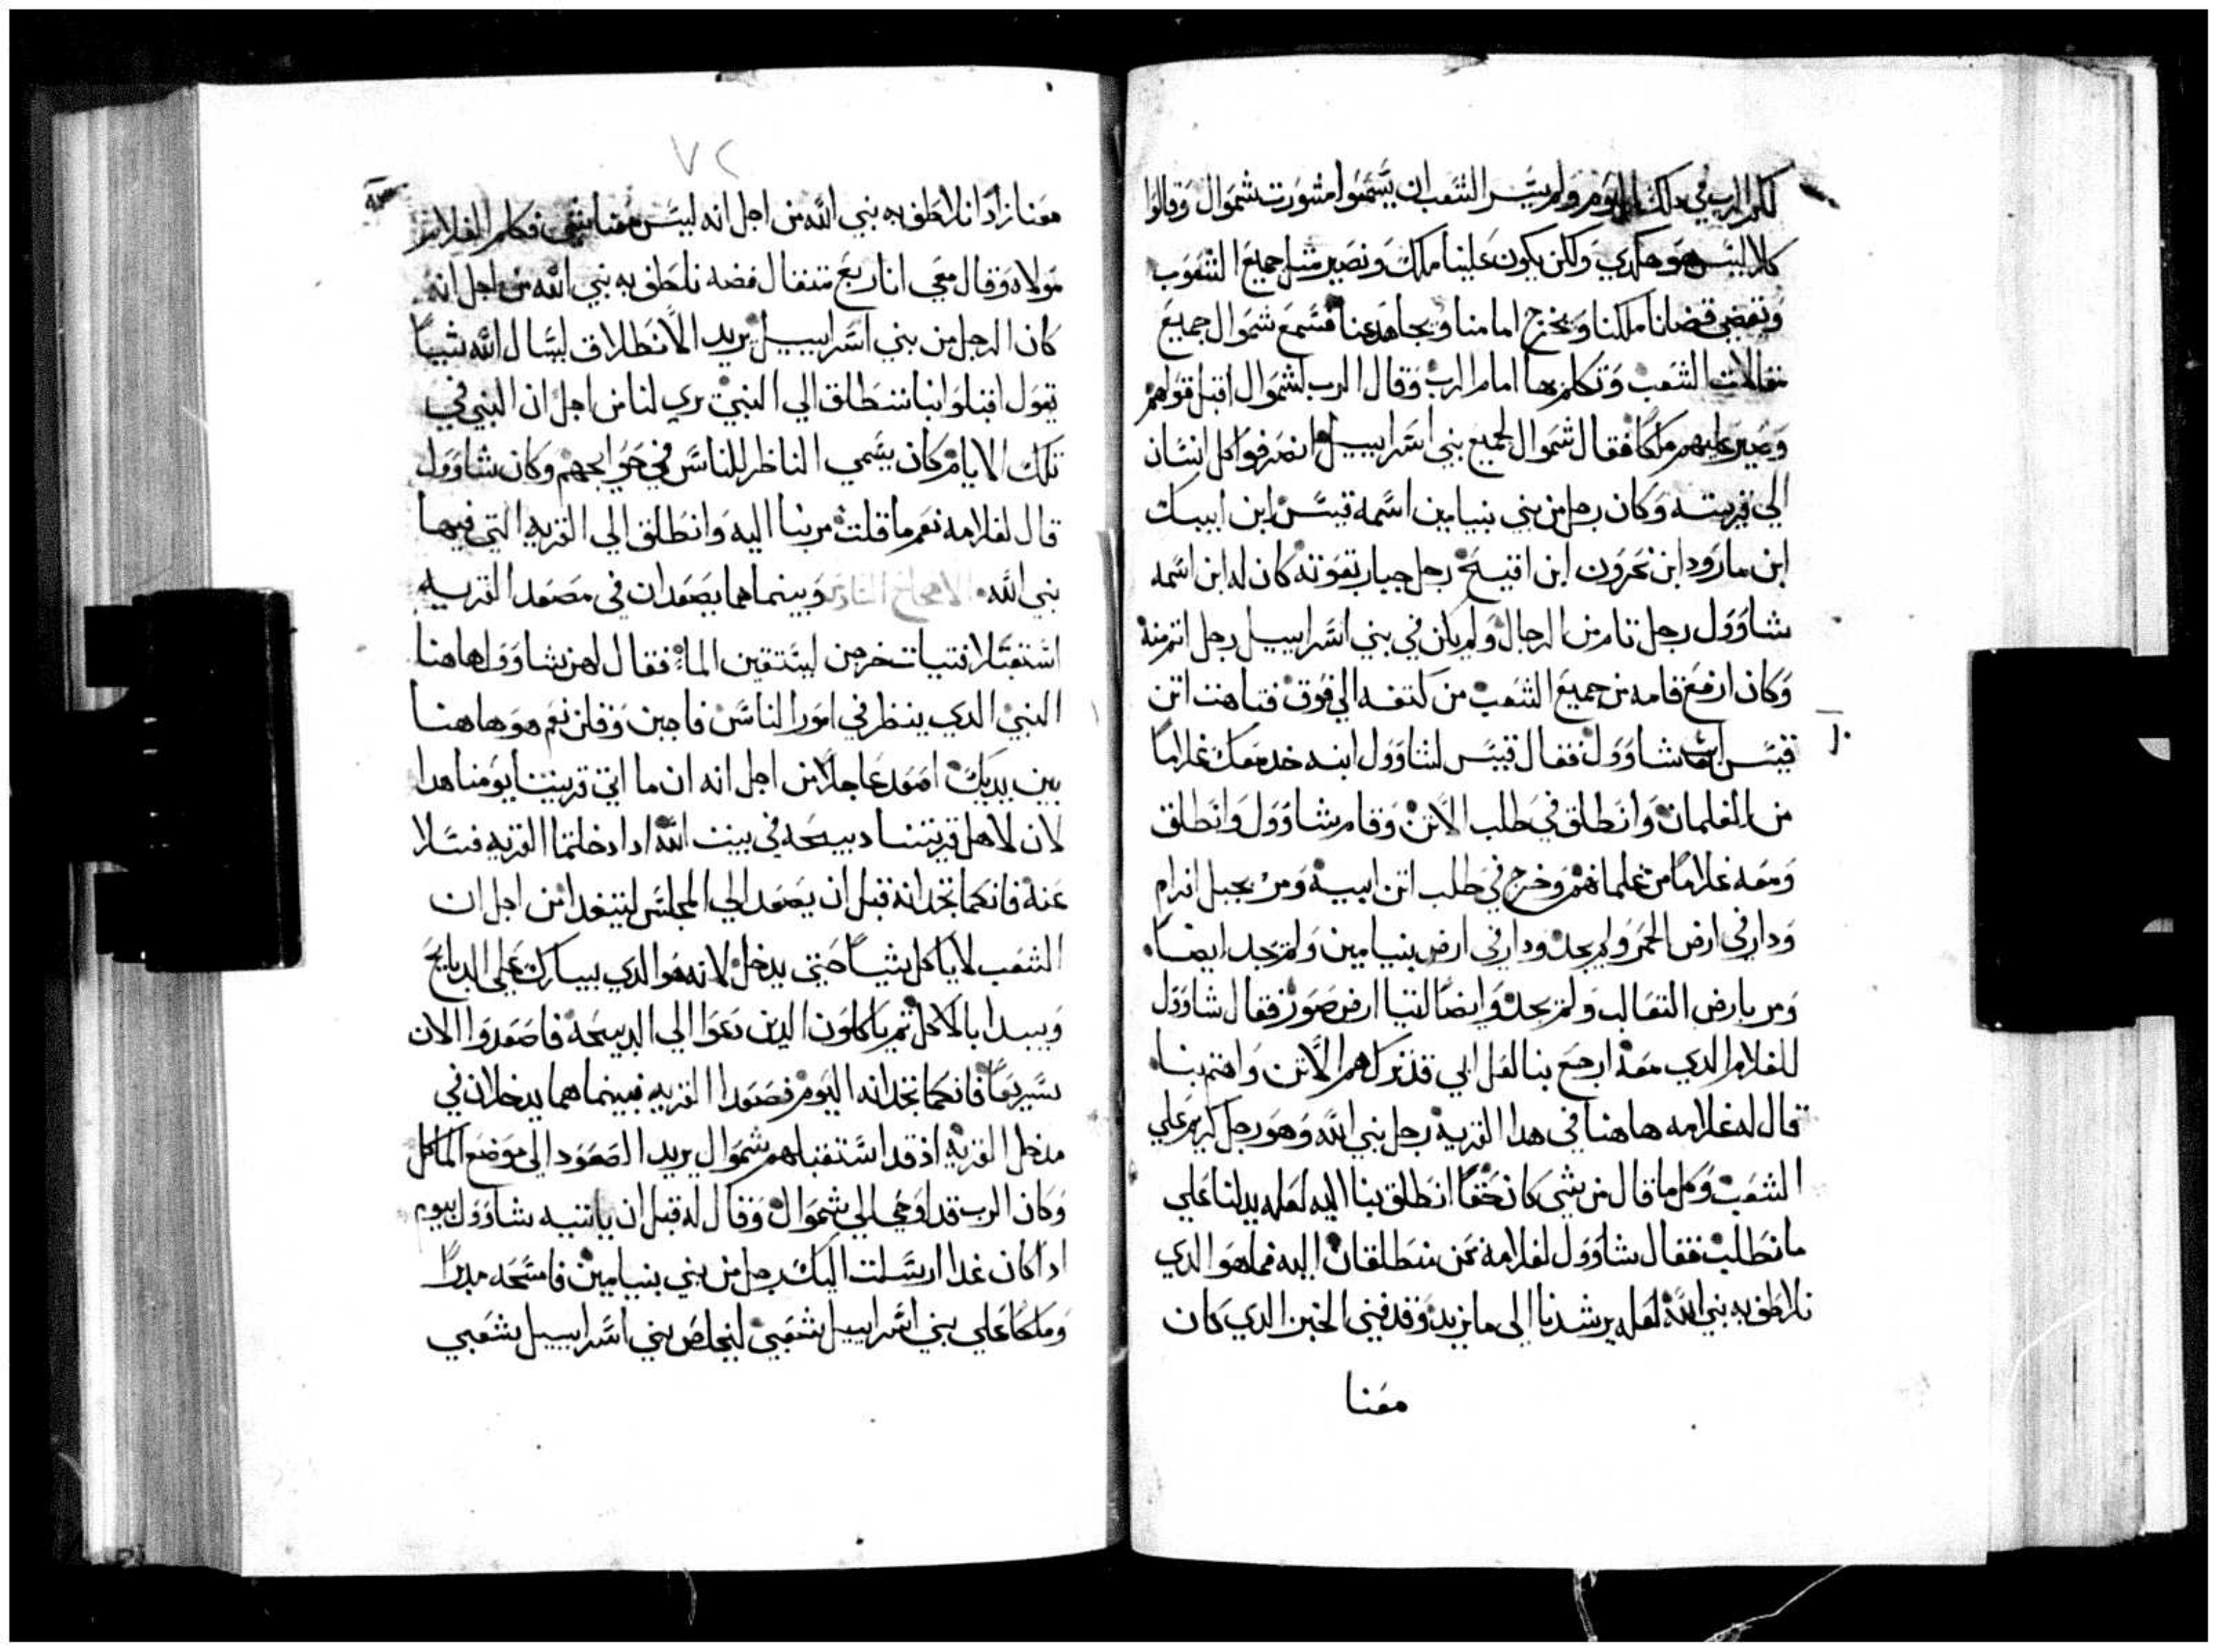 لكم الرب في ذلك اليوم ولم يسر الشعب ان يسمعوا مشورت شموال وقالوا
كلا ليس هو هكدي ولكن يكون علينا ملك ونصير مثل جميع الشعوب
وتقضي قضانا ملكنا ويخرج امامنا ويجاهد عنا فسمع شموال جميع
مقالات الشعب وتكلم بها امام الرب وقال الرب لشموال اقبل قولهم
وصير عليهم ملكا فقال شموال لجميع بني اسراييل انصرفوا كل انسان
الي قريته وكان رجل من بني بنيامين اسمه قيس ابن ابيك
ابن مارود ابن نحرون ابن افيح رجل جبار بقوته كان له ابن اسمه
شاوول رجل تام من الرجال ولم يكن في بني اسراييل رجل اتم منه
وكان ارفع قامه من جميع الشعب من كتفه الي فوق فتاهت اتن
قيس ابي شاوول فقال قيس لشاوول ابنه خد معك غلاما
من الغلمان وانطلق في طلب الاتن وقام شاوول وانطلق
ومعه غلاما من غلمانهم وخرج في طلب اتن ابيه ومر بجبل افرام
ودار في ارض الحمر ولم يجد ودار في ارض بنيامين ولم يجد ايضا
ومر بارض التعالب ولم يجد وايضا اتيا ارض صور فقال شاوول
للغلام الدي معه ارجع بنا لعل ابي قد ترك هم الاتن واهتم بنا
قال له غلامه هاهنا في هدا القريه رجل نبي الله وهو رجل كريم علي
الشعب وكل ما قال من شي كان حقا انطلق بنا اليه لعله يدلنا علي
ما نطلب فقال شاوول لغلامه نحن منطلقان اليه فما هو الدي
نلاطف به نبي الله لعله يرشدنا الي ما نريد وقد فني الخبز الدي كان
معنا
٧٢
معنا زادا نلاطف به نبي الله من اجل انه ليس معنا شي فكلم الغلام
مولاه وقال معي انا ربع متقال فضه نلطف به نبي الله من اجل انه
كان الرجل من بني اسراييل يريد الانطلاق ليسال الله شيا
يقول اقبلوا بنا ننطلق الي النبي يري لنا من اجل ان النبي في
تلك الايام كان يسمي الناظر للناس في حوايجهم وكان شاوول
قال لغلامه نعم ما قلت مر بنا اليه وانطلق الي القريه التي فيها
نبي الله الاصحاح وبينما هما يصعدان في مصعد القريه
استقبلا فتيات خرجن ليستقين الما فقال لهن شاوول هاهنا
النبي الدي ينظر في امور الناس فاجبن وقلن نعم هو هاهنا
بين يديك اصعد عاجلا من اجل انه ان ما اتي قريتنا يومنا هدا
لان لاهل قريتنا دبيحه في بيت الله ادا دخلتما القريه فسلا
عنه فانكما تجدانه قبل ان يصعد الي المجلس ليتغدا من اجل ان
الشعب لا ياكل شيا حتي يدخل لانه هو الدي يبارك علي الدبايح
ويبدا بالاكل ثم ياكلون الدين دعوا الي الدبيحه فاصعدوا الان
سريعا فانكما تجدانه اليوم فصعدا القريه فبينما هما يدخلان في
مدخل القريه اذ قد استقبلهم شموال يريد الصعود الي موضع الماكل
وكان الرب قد اوحي الي شموال وقال له قبل ان ياتيه شاوول بيوم
ادا كان غدا ارسلت اليك رجل من بني بنيامين فامسحه مدبرا
وملكا علي بني اسراييل شعبي ليخلص بني اسراييل شعبي